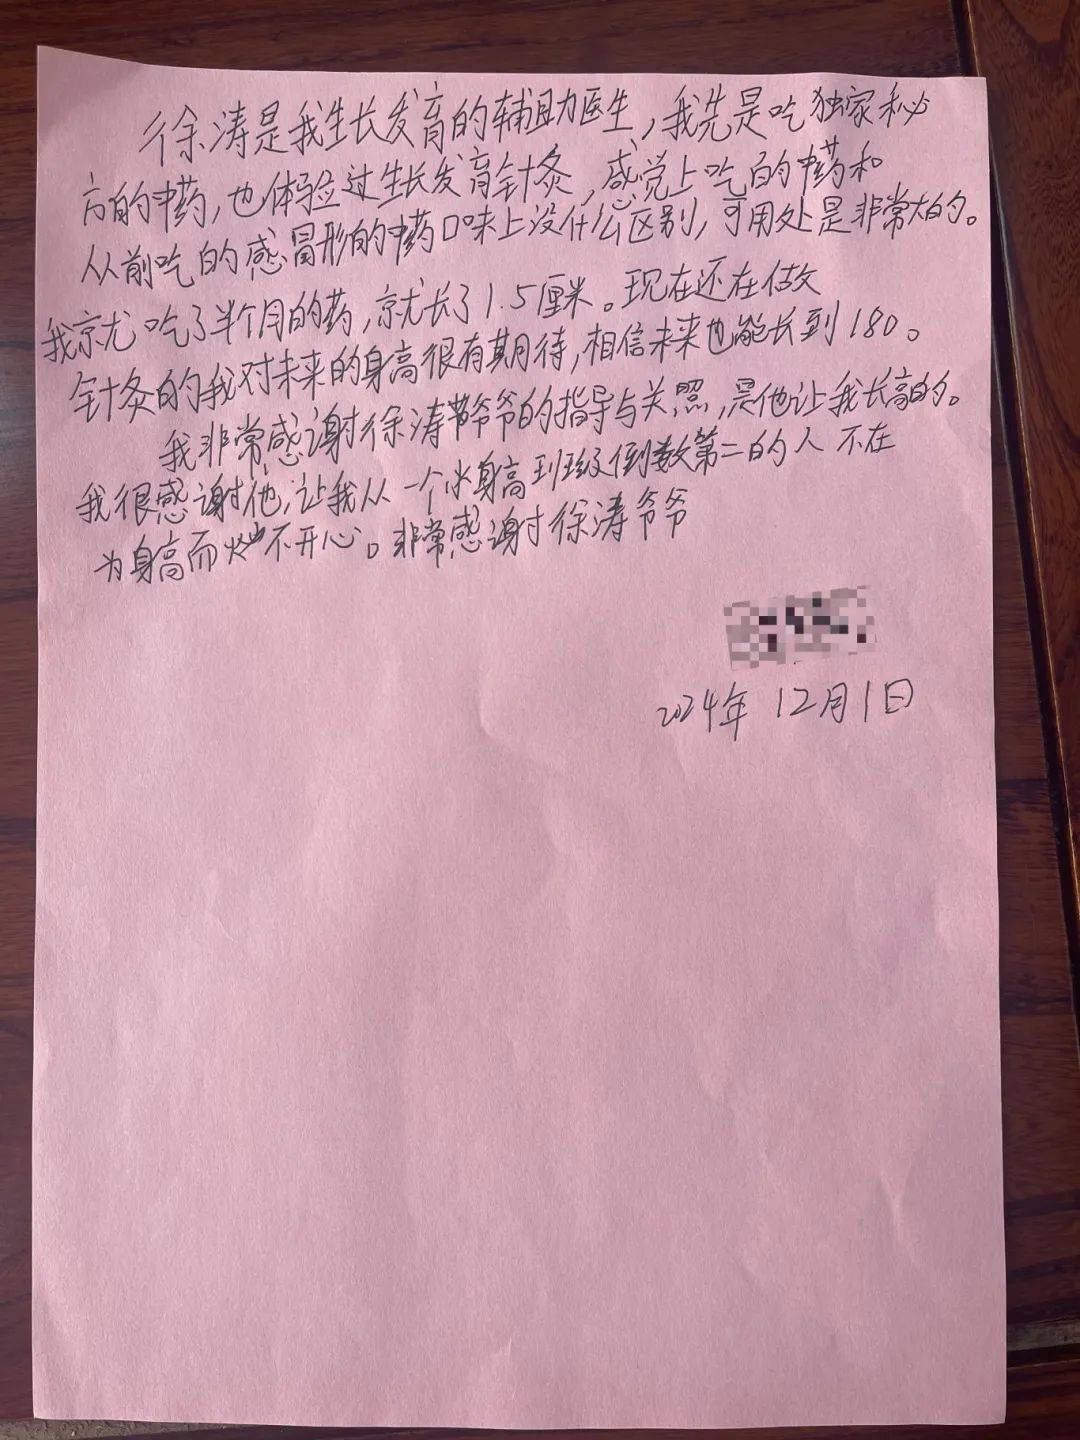 徐涛是我生长发育的辅助医生，我先是吃独家秘
方的中药，也体验过生长发育针灸，感觉上吃的中药和
从前吃的感冒形的中药口味上没什么区别，可用处是非常大的。
我就吃了半个月的药，就长了1.5厘米。现在还在做
针灸的我对未来的身高很有期待，相信未来也能长到180。
我非常感谢徐涛爷爷的指导与关照，是他让我长高的。
我很感谢他，让我从一个身高班级倒数第二的人不在
为身高而不开心。非常感谢徐涛爷爷
2024年12月1日